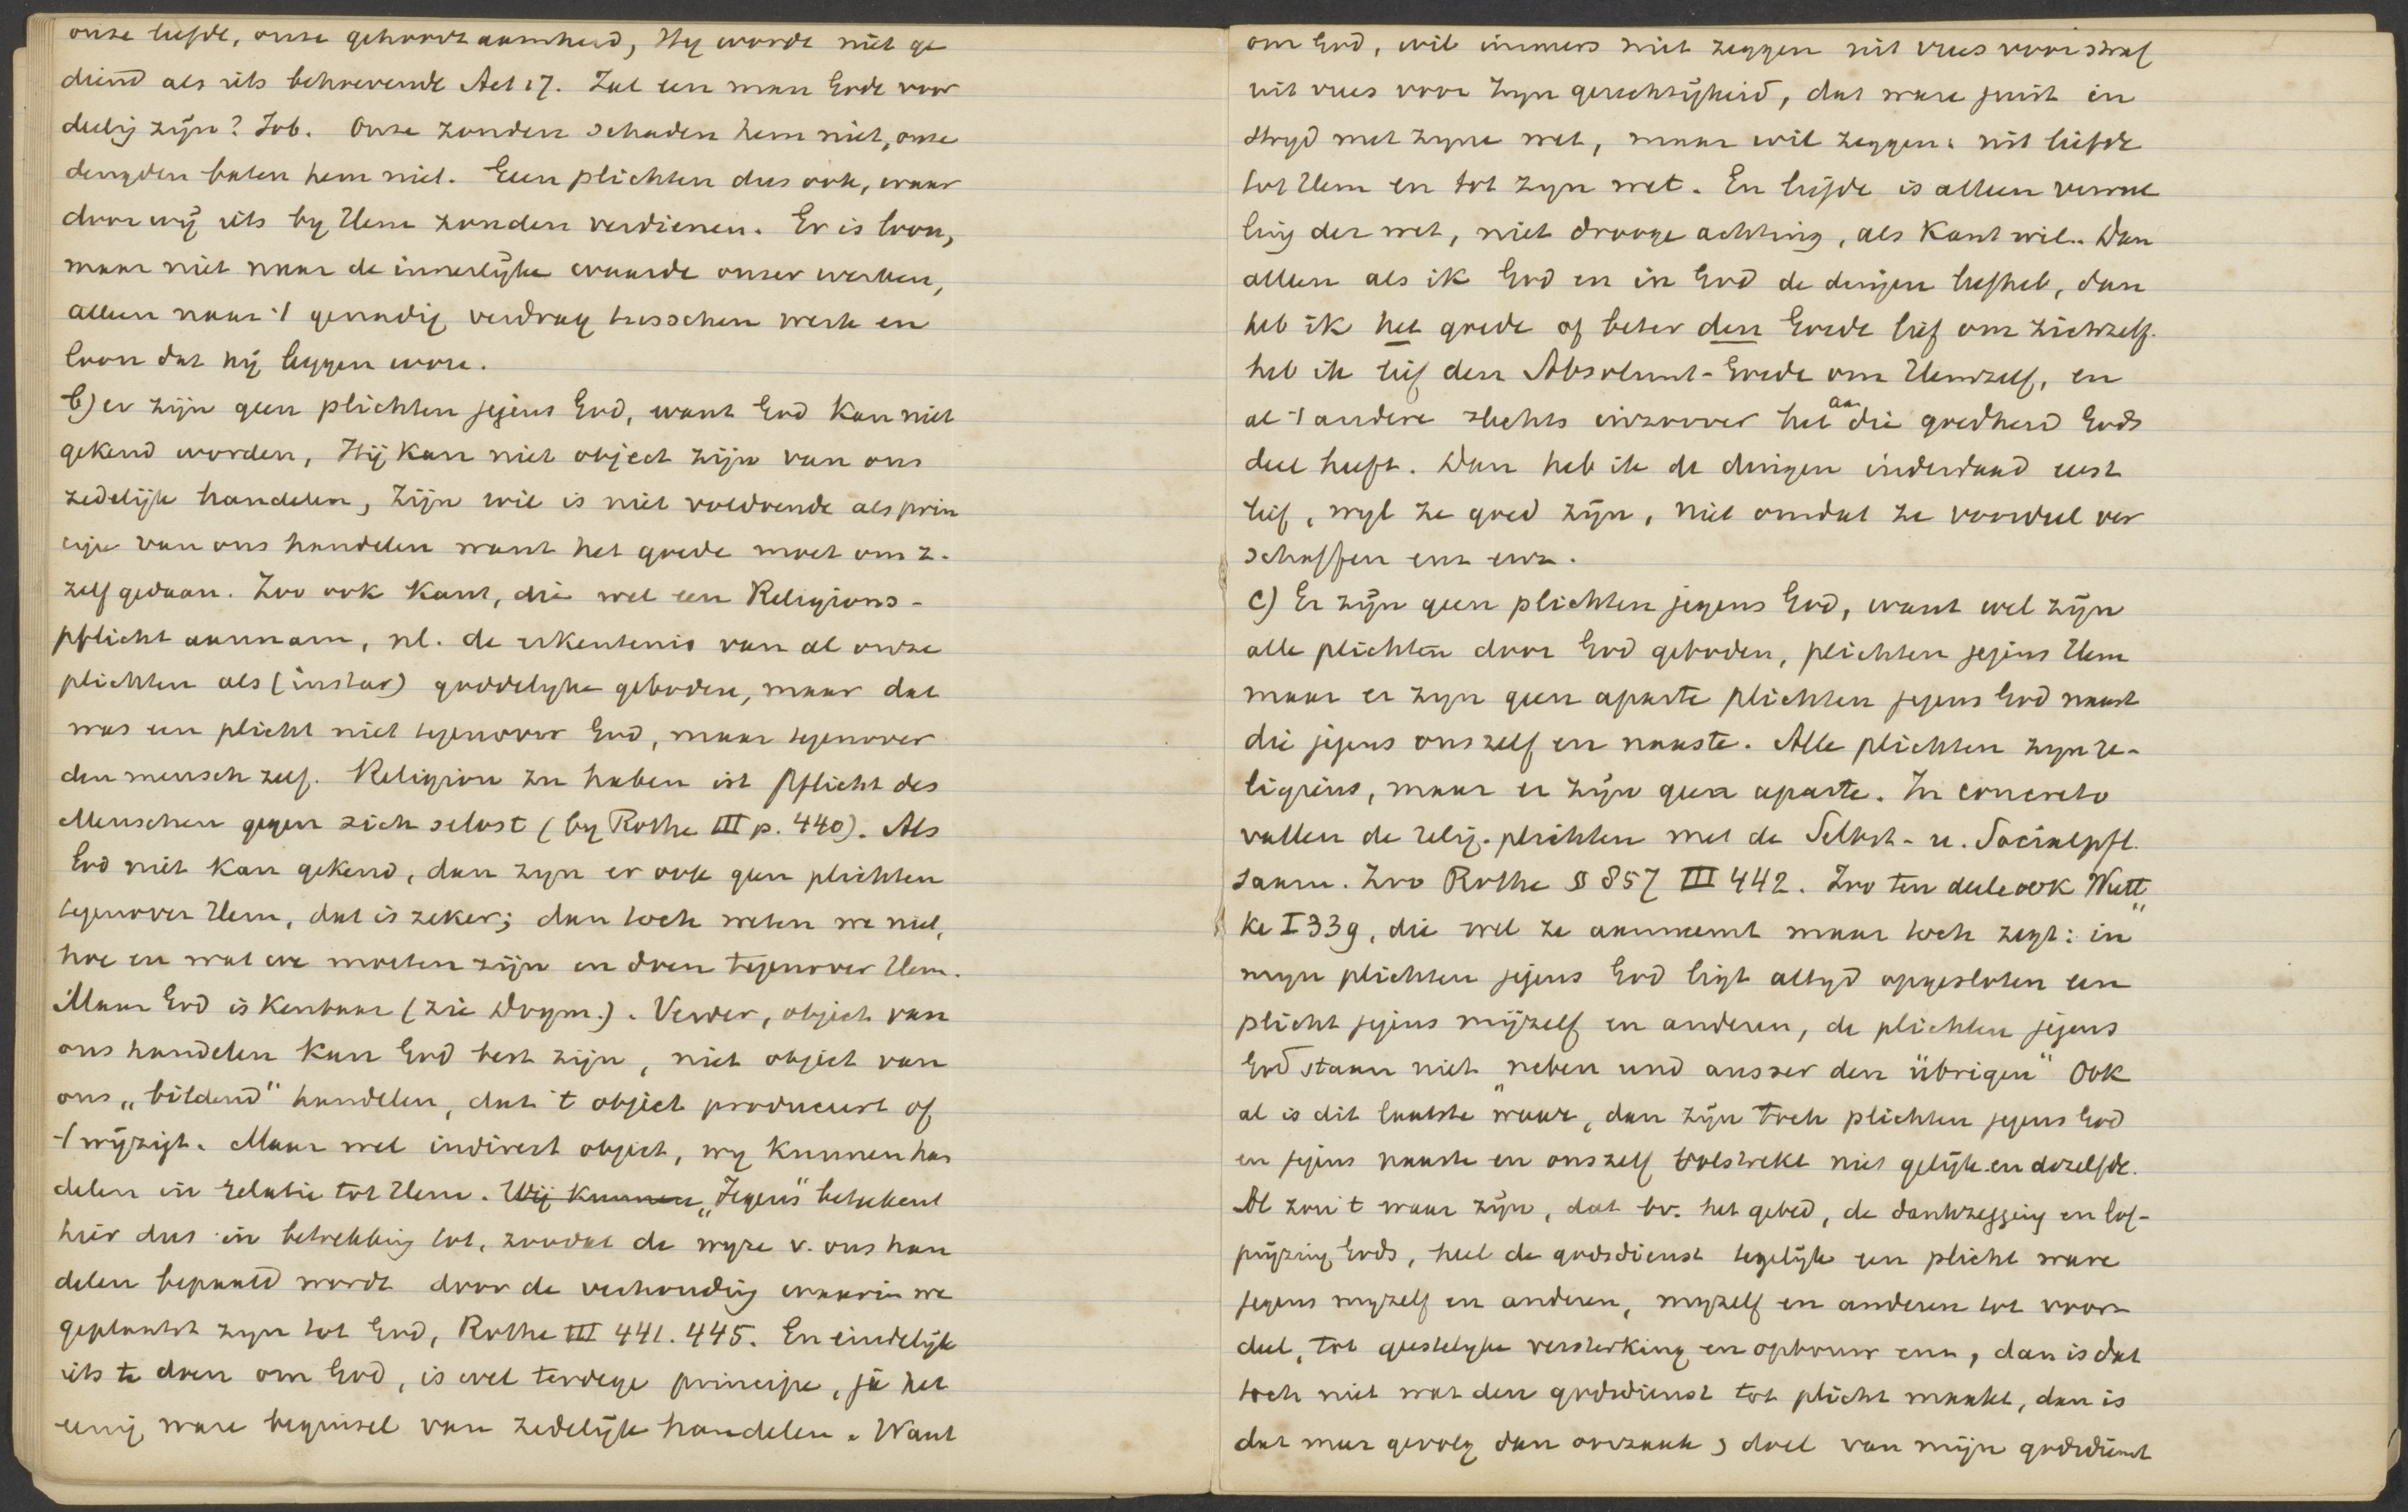 onze liefde, onze gehoorzaamheid, Hy wordt niet ge
diend als iets behoevende Act 17. Zal een man Gode voor
deelig zijn? Job. Onze zonden schaden hem niet, onze
deugden baten hem niet. Geen plichten dus ook, waar
door wij iets by Hem zouden verdienen. Er is loon,
maar niet naar de innerlijke waarde onzer werken,
alleen naar 't genadig verdrag tusschen werk en
loon dat hij leggen wou.
b) er zijn geen plichten jegens God, want God kan niet
gekend worden, Hij kan niet object zijn van ons
zedelijk handelen, zijn wil is niet voldoende als prin
cipe van ons handelen want het goede moet om z.
zelf gedaan. Zoo ook Kant, die wel een Religions-
pflicht aannam, nl. de erkentenis van al onze
plichten als (instar) goddelyke geboden, maar dat
was een plicht niet tegenover God, maar tegenover
den mensch zelf. Religion zu haben ist Pflicht des
Menschen gegen sich selbst (by Rothe III p. 440). Als
God niet kan gekend, dan zyn er ook geen plichten
tegenover Hem, dat is zeker; dan toch weten we niet,
hoe en wat we moeten zijn en doen tegenover Hem.
Maar God is kenbaar (zie Dogm.). Verder, object van
ons handelen kan God best zijn, niet object van
ons „bildend" handelen, dat 't object produceert of
't wijzigt. Maar wel indirect object, wy kunnen han
delen in relatie tot Hem. Wij kunnen „Jegens" beteekent
hier dus in betrekking tot, zoodat de wyze v. ons han
delen bepaald wordt door de verhouding waarin we
geplaatst zyn tot God, Rothe III 441. 445. En eindelijk
iets te doen om God, is wel terdege principe, ja het
eenig ware beginsel van zedelijk handelen. Want
om God, wil immers niet zeggen uit vrees voor straf
uit vrees voor zyn gerechtigheid, dat ware juist in
stryd met zyne wet, maar wil zeggen: uit liefde
tot Hem en tot zyn wet. En liefde is alleen vervul
ling der wet, niet drooge achting, als Kant wil. Dan
alleen als ik God en in God de dingen liefheb, dan
heb ik het goede of beter den Goede lief om zichzelf.
heb ik lief den Absoluut-Goede om Hemzelf, en
al 't andere slechts inzoover het aan die goedheid Gods
deel heeft. Dan heb ik de dingen inderdaad eerst
lief, wyl ze goed zijn, niet omdat ze voordeel ver
schaffen enz enz.
c) Er zijn geen plichten jegens God, want wel zijn
alle plichten door God geboden, plichten jegens Hem
maar er zyn geen aparte plichten jegens God naast
die jegens onszelf en naaste. Alle plichten zyn re-
ligieus, maar er zijn geen aparte. In concreto
vallen de relig. plichten met de Selbst- u. Socialpfl.
saam. Zoo Rothe § 857 III 442. Zoo ten deele ook Wutt„
ke I 339, die wel ze aanneemt maar toch zegt: in
myn plichten jegens God ligt altyd opgesloten een
plicht jegens mijzelf en anderen, de plichten jegens
God staan niet „neben und ausser den übrigen" Ook
al is dit laatste waar, dan zijn toch plichten jegens God
en jegens naaste en onszelf volstrekt niet gelijk en dezelfde.
Al zou 't waar zijn, dat bv. het gebed, de dankzegging en lof-
prijzing Gods, heel de godsdienst tegelijk een plicht ware
jegens myzelf en anderen, myzelf en anderen tot voor-
deel, tot geestelyke versterking en opbouw enz, dan is dat
toch niet wat den godsdienst tot plicht maakt, dan is
dat maar gevolg dan oorzaak, doel van mijn godsdienst